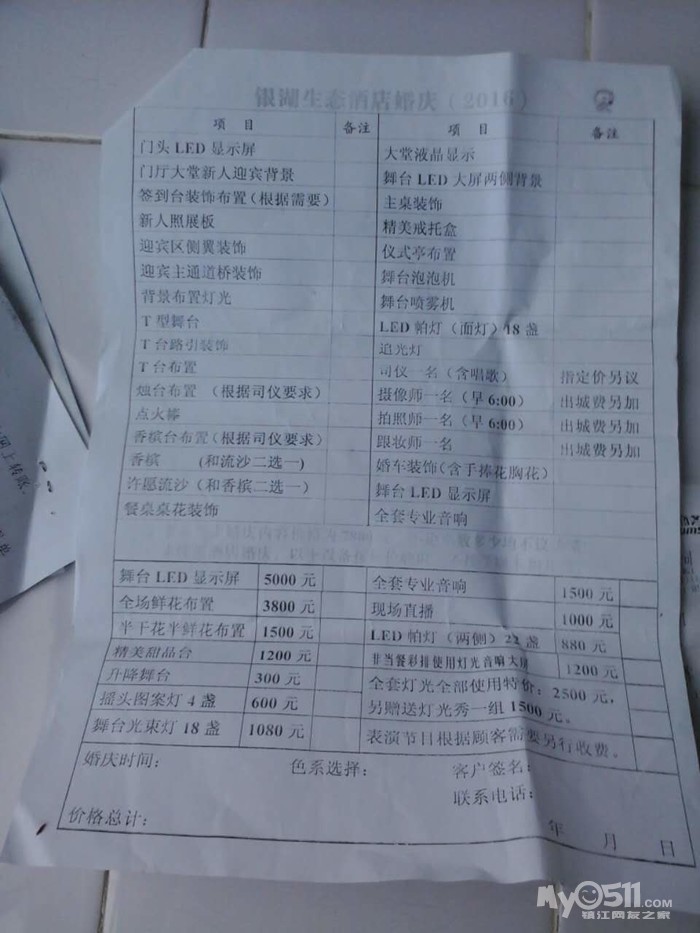 银湖生态酒店婚庆（2016）
项 目 备注 项 目 备注
门头 LED 显示屏 大堂液晶显示
门厅大堂新人迎宾背景 舞台 LED 大屏两侧背景
签到台装饰布置（根据需要） 主桌装饰
新人照展板 精美戒托盒
迎宾区侧翼装饰 仪式亭布置
迎宾主通道桥装饰 舞台泡泡机
背景布置灯光 舞台喷雾机
T 型舞台 LED 帕灯（面灯）18 盏
T 台路引装饰 追光灯
T 台布置 司仪一名（含唱歌） 指定价另议
烛台布置 （根据司仪要求） 摄像师一名（早 6:00） 出城费另加
点火棒 拍照师一名（早 6:00） 出城费另加
香槟台布置（根据司仪要求） 跟妆师一名 出城费另加
香槟 （和流沙二选一） 婚车装饰（含手捧花胸花）
许愿流沙（和香槟二选一） 舞台 LED 显示屏
餐桌桌花装饰 全套专业音响
舞台 LED 显示屏 5000 元 全套专业音响 1500 元
全场鲜花布置 3800 元 现场直播 1000 元
半干花半鲜花布置 1500 元 LED 帕灯（两侧）22 盏 880 元
精美甜品台 1200 元 非当餐彩排使用灯光音响大屏 1200 元
升降舞台 300 元 全套灯光全部使用特价：2500 元，
摇头图案灯 4 盏 600 元 另赠送灯光秀一组 1500 元。
舞台光束灯 18 盏 1080 元 表演节目根据顾客需要另行收费。
婚庆时间： 色系选择： 客户签名：
联系电话：
价格总计：
年 月 日
My0511.com
镇江网友之家